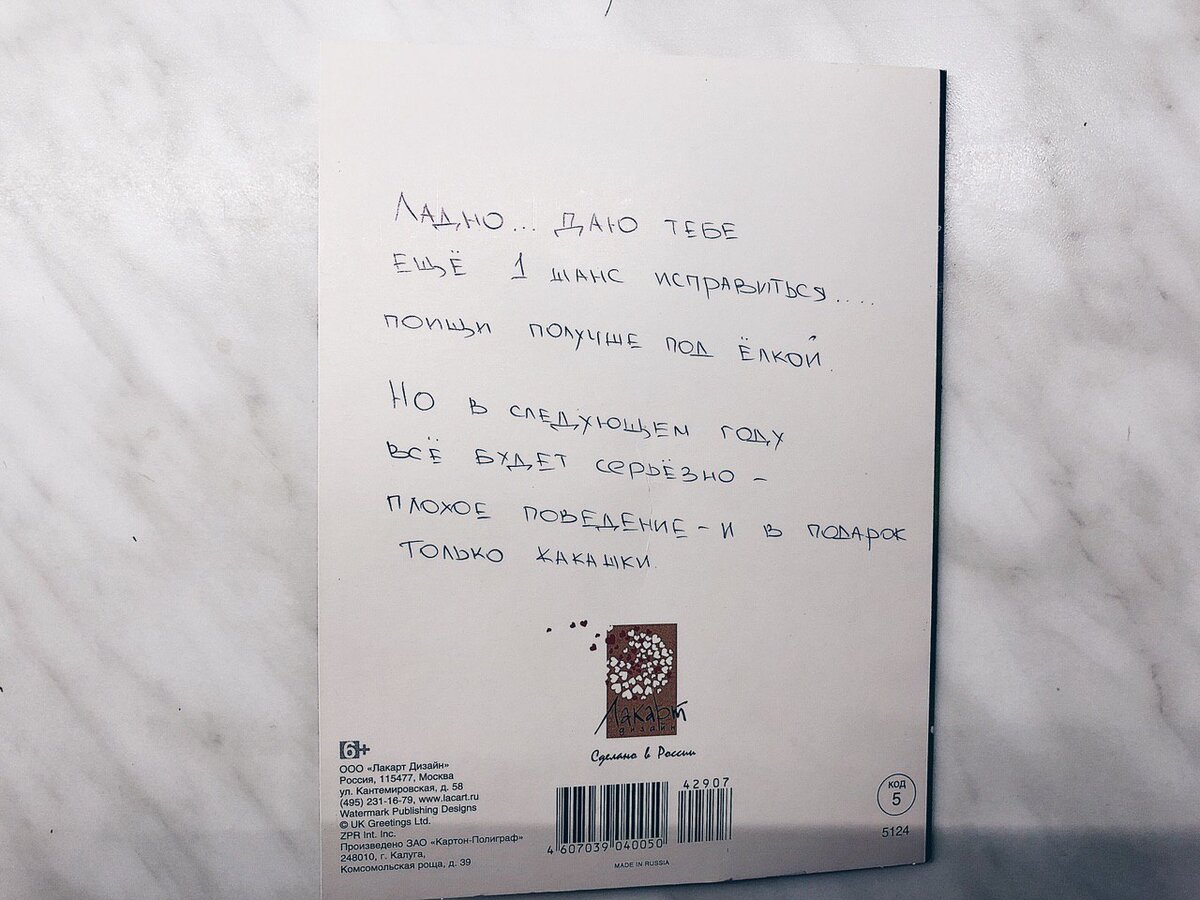 Ладно... даю тебе
ещё 1 шанс исправиться....
поищи получше под ёлкой.
Но в следующем году
всё будет серьёзно –
плохое поведение – и в подарок
только какашки.
Лакарт
дизайн
Сделано в России
6+
ООО «Лакарт Дизайн»
Россия, 115477, Москва
ул. Кантемировская, д. 58
(495) 231-16-79, www.lacart.ru
Watermark Publishing Designs
© UK Greetings Ltd.
ZPR Int. Inc.
Произведено ЗАО «Картон-Полиграф»
248010, г. Калуга,
Комсомольская роща, д. 39
42907
4 607039 040050
MADE IN RUSSIA
код
5
5124